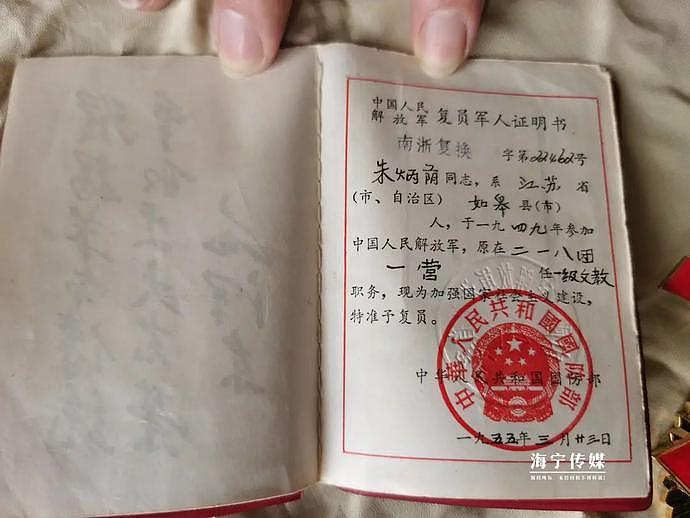 中国人民
解放军 复员军人证明书
南浙复换 字第 号
朱炳荫同志，系 江苏 省
(市、自治区) 如皋 县(市)
人，于一九四九年参加
中国人民解放军，原在二一八团
一营 任一级文教
职务，现为加强国家社会主义建设，
特准予复员。
中华人民共和国国防部
中华人民共和國國防部
一九五五年三月廿三日
海宁传媒